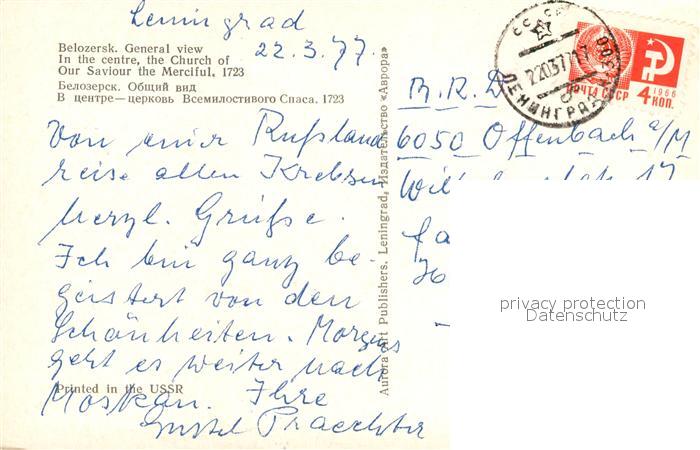 Leningrad
22.3.77.
Belozersk. General view
In the centre, the Church of
Our Saviour the Merciful, 1723
Белозерск. Общий вид
В центре—церковь Всемилостивого Спаса. 1723
Von einer Rußland
reise allen Krebsen
herzl. Grüße.
Ich bin ganz be-
geistert von den
Schönheiten. Morgen
geht es weiter nach
Moskau. Ihre
Gustel Praechter
Printed in the USSR
Aurora Art Publishers. Leningrad, Издательство «Аврора»
СССР
ЛЕНИНГРАД
ПОЧТА СССР
1966
4 КОП.
B.R.D
6050 Offenbach a/M
privacy protection
Datenschutz